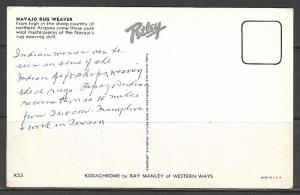 NAVAJO RUG WEAVER
From high in the sheep country of
northern Arizona come these pure
wool masterpieces of the Navajo's
rug weaving skill.
Petley
Indian women can be
seen in some of the
Indian shops weaving
these rugs. Papago Indian
reservation is 10 miles
from Tucson. Many live
& work in Tucson
K53
KODACHROME by RAY MANLEY of WESTERN WAYS
MADE IN U.S.A.